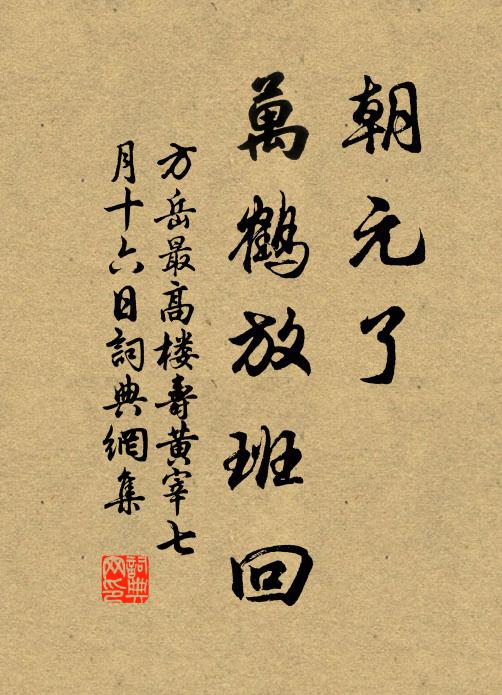 朝元了
萬鶴放班回
方岳最高楼壽黃宰七
月十六日詞典網集
詞典
网印